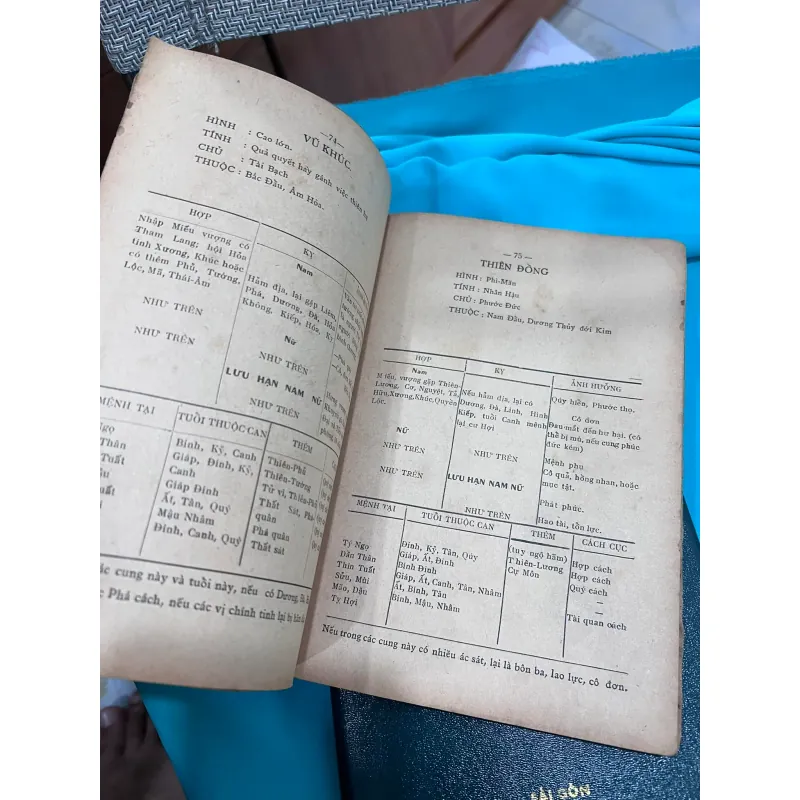 —74—
VŨ KHÚC
HÌNH : Cao lớn.
TÍNH : Quả quyết hay gánh việc thiên hạ
CHỦ : Tài Bạch
THUỘC : Bắc Đẩu, Âm Hỏa.
HỢP
KỴ
Nhập Miếu vượng có
Tham Lang; hội Hỏa
tinh Xương, Khúc hoặc
có thêm Phủ, Tướng,
Lộc, Mã, Thái-Âm
NHƯ TRÊN
NHƯ TRÊN
Nam
Hãm địa, lại gặp Liêm,
Phá, Dương, Đà, Hỏa
Không, Kiếp, Hóa, Kỵ
NHƯ TRÊN
Nữ
NHƯ TRÊN
LƯU HẠN NAM NỮ
NHƯ TRÊN
MỆNH TẠI
TUỔI THUỘC CAN
THÊM
Ngọ
Thân
Tuất
Mùi
Dậu
Hợi
Bính, Kỷ, Canh
Giáp, Đinh, Kỷ,
Canh
Giáp Đinh
Ất, Tân, Quý
Mậu Nhâm
Đinh, Canh, Quý
Thiên-Phủ
Thiên-Tướng
Tử vi, Thiên-Phủ
Thất Sát, Phá
quân
Phá quân
Thất sát
các cung này và tuổi này, nếu có Dương, Đà,
Phá cách, nếu các vị chính tinh lại bị hãm
— 75 —
THIÊN ĐỒNG
HÌNH : Phì-Mãn
TÍNH : Nhân Hậu
CHỦ : Phước Đức
THUỘC : Nam Đẩu, Dương Thủy đới Kim
HỢP
KỴ
ẢNH HƯỞNG
Nam
Miếu, vượng gặp Thiên-
Lương, Cơ, Nguyệt, Tả,
Hữu, Xương, Khúc, Quyền
Lộc.
NỮ
NHƯ TRÊN
NHƯ TRÊN
Nếu hãm địa, lại có
Dương, Đà, Linh, Hình
Kiếp, tuổi Canh mệnh
lại cư Hợi
NHƯ TRÊN
LƯU HẠN NAM NỮ
NHƯ TRÊN
Qúy hiền, Phước thọ.
Cô đơn
Đau mắt đến hư hại. (có
thể bị mù, nếu cung phúc
đức kém)
Mệnh phụ
Cô quả, hồng nhan, hoặc
mục tật.
Phát phúc.
Hao tài, tổn lực.
MỆNH TẠI
TUỔI THUỘC CAN
THÊM
CÁCH CỤC
Tý Ngọ
Dần Thân
Thìn Tuất
Sửu, Mùi
Mão, Dậu
Tỵ Hợi
Đinh, Kỷ, Tân, Qúy
Giáp, Ất, Đinh
Bính Đinh
Giáp, Ất, Canh, Tân, Nhâm
Ất, Bính, Tân
Bính, Mậu, Nhâm
(tuy ngộ hãm)
Thiên-Lương
Cự Môn
Hợp cách
Hợp cách
Quý cách
—
—
Tài quan cách
Nếu trong các cung này có nhiều ác sát, lại là bôn ba, lao lực, cô đơn.
SÀI GÒN